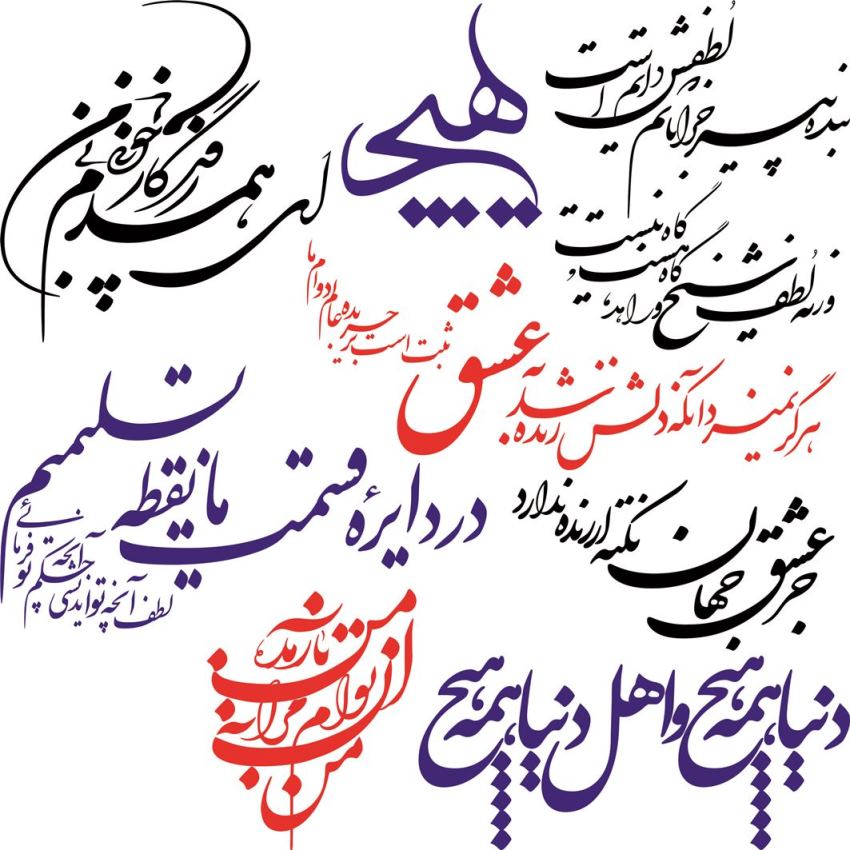 ای همدم روزگار چونی بی من
هیچ
بنده پیر خراباتم
لطفش دایم است
ورنه لطف شیخ و زاهد
گاه هست و گاه نیست
هرگز نمیرد آنکه دلش زنده شد به عشق
ثبت است بر جریده عالم دوام ما
در دایرهٔ قسمت ما نقطه تسلیمیم
لطف آنچه تو اندیشی حکم آنچه تو فرمائی
جز عشق جهان نکته ارزنده ندارد
من آن توام مرا به من باز مده
دنیا همه هیچ و اهل دنیا همه هیچ